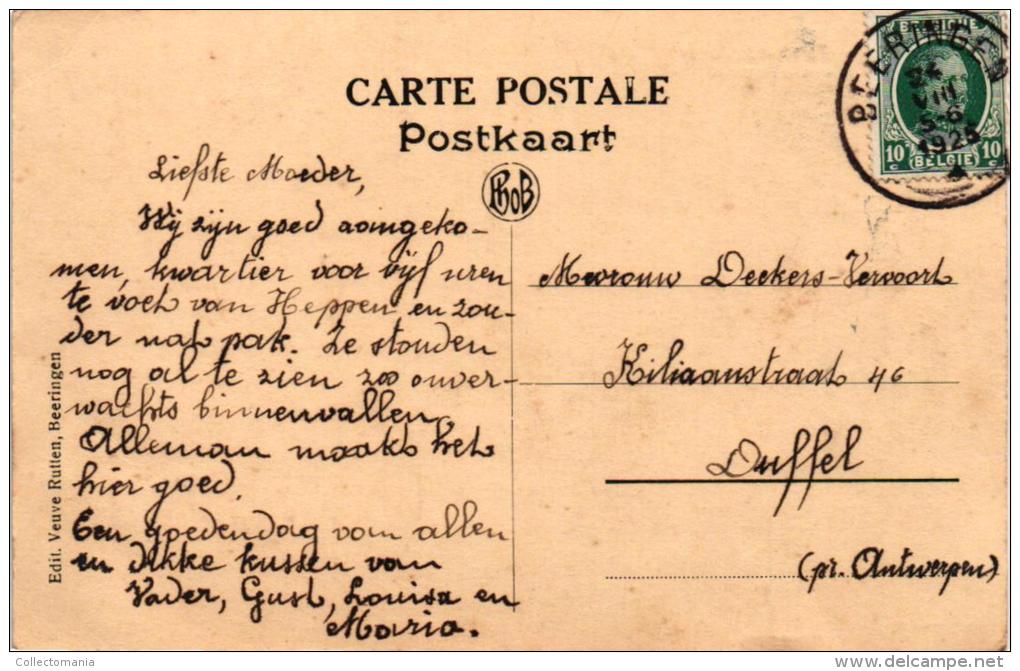 CARTE POSTALE
Postkaart
BEERINGEN
24
VIII
5-6
1925
BELGIQUE
10c BELGIE 10c
PhoB
Liefste Moeder,
Wij zijn goed aangeko-
men, kwartier voor vijf uren
te voet van Heppen en zon-
der nat pak. Ze stonden
nog al te zien zoo onver-
wachts binnenvallen.
Alleman maakt het
hier goed.
Een goedendag van allen
en dikke kussen van
Vader, Gust, Louisa en
Maria.
Mevrouw Deckers-Vervoort
Kiliaanstraat 46
Duffel
(pr. Antwerpen)
Edit. Veuve Rutten, Beeringen
Collectomania
www.delcampe.net